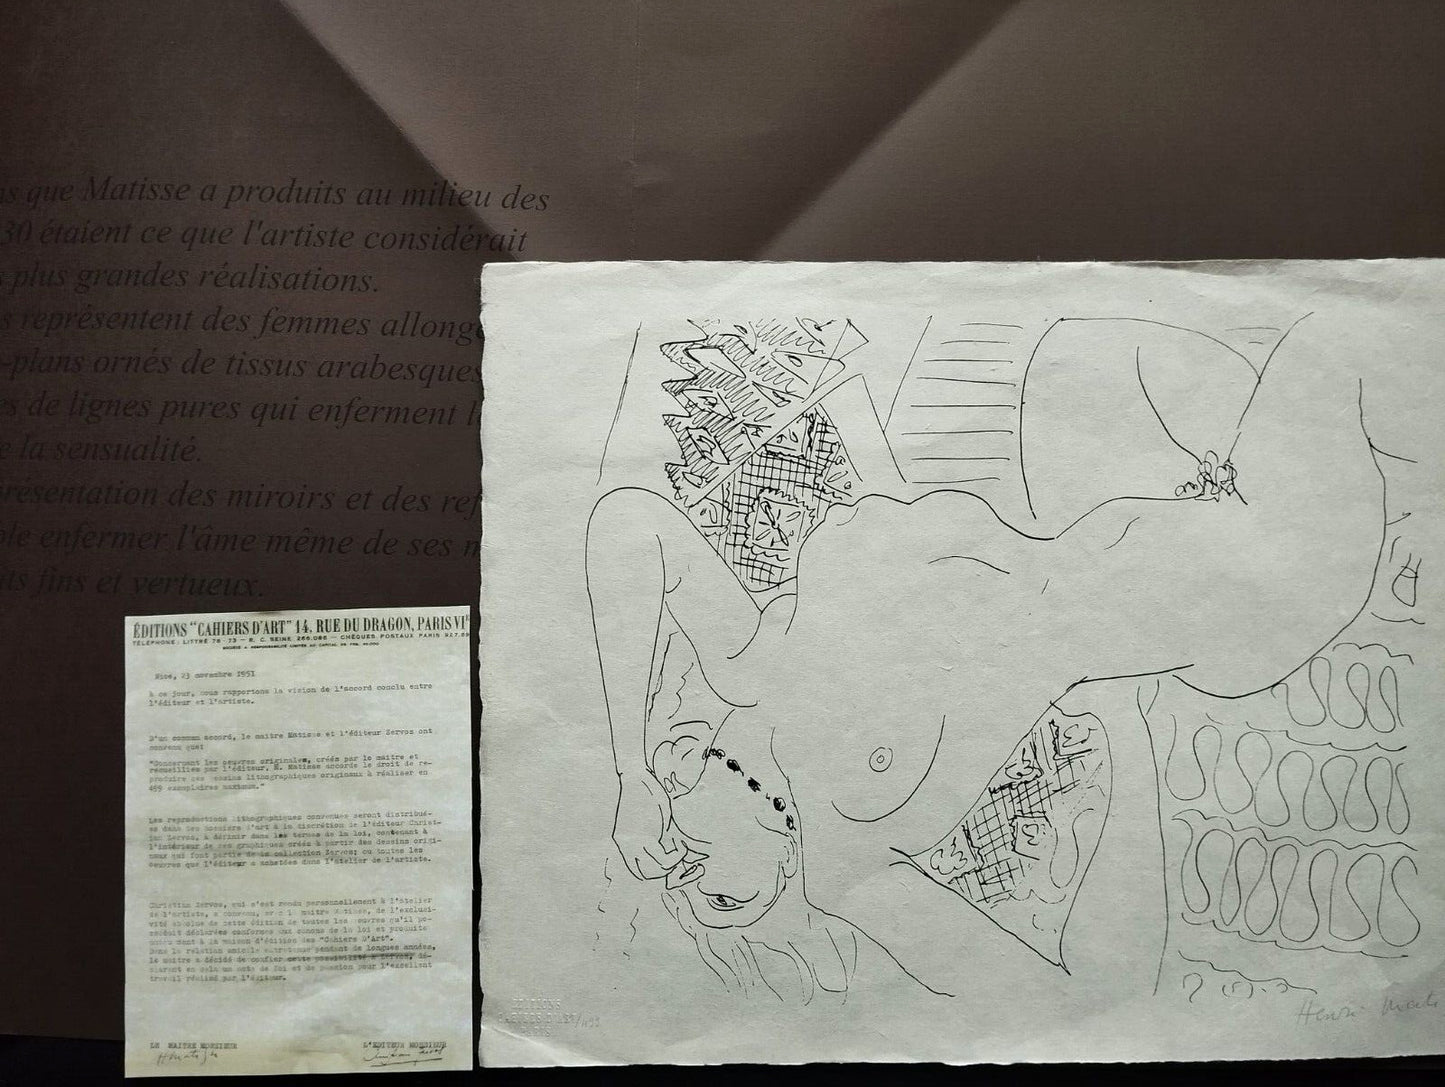 ns que Matisse a produits au milieu des
30 étaient ce que l'artiste considérait
s plus grandes réalisations.
s représentent des femmes allong
-plans ornés de tissus arabesques
es de lignes pures qui enferment l
e la sensualité.
résentation des miroirs et des ref
ble enfermer l'âme même de ses m
its fins et vertueux.
ÉDITIONS "CAHIERS D'ART" 14, RUE DU DRAGON, PARIS VI
TÉLÉPHONE : LITTRÉ 76-73 — R. C. SEINE 266.086 — CHÈQUES POSTAUX PARIS 927.
SOCIÉTÉ A RESPONSABILITÉ LIMITÉE AU CAPITAL DE FRS.
Nice, 23 novembre 1951
A ce jour, nous rapportons la vision de l'accord conclu entre
l'éditeur et l'artiste.
D'un commun accord, le maitre Matisse et l'éditeur Zervos ont
convenu que:
"Concernant les oeuvres originales, créés par le maitre et
recueillies par l'éditeur, H. Matisse accorde le droit de re-
produire ces dessins lithographiques originaux à réaliser en
499 exemplaires maximum."
Les reproductions lithographiques convenues seront distribué-
es dans des dossiers d'art à la discrétion de l'éditeur Christ-
ian Zervos, à définir dans les termes de la loi, contenant à
l'intérieur de ces graphiques créés à partir des dessins origi-
naux qui font partie de la collection Zervos; ou toutes les
oeuvres que l'éditeur a achetées dans l'atelier de l'artiste.
Christian Zervos, qui s'est rendu personnellement à l'atelier
de l'artiste, a convenu, avec le maitre Matisse, de l'exclusi-
vité absolue de cette édition de toutes les oeuvres qu'il po-
ssédait déclarées conformes aux canons de la loi et produite
par la maison d'édition des "Cahiers D'Art".
Dans la relation amicale entretenue pendant de longues années,
le maitre a décidé de confier cette possibilité à Zervos, dé-
clarant en cela un acte de foi et de passion pour l'excellent
travail réalisé par l'éditeur.
LE MAITRE MONSIEUR
L'EDITEUR MONSIEUR
HMatisse
EDITIONS
CAHIERS D'ART
PARIS
/499
Henri Mati